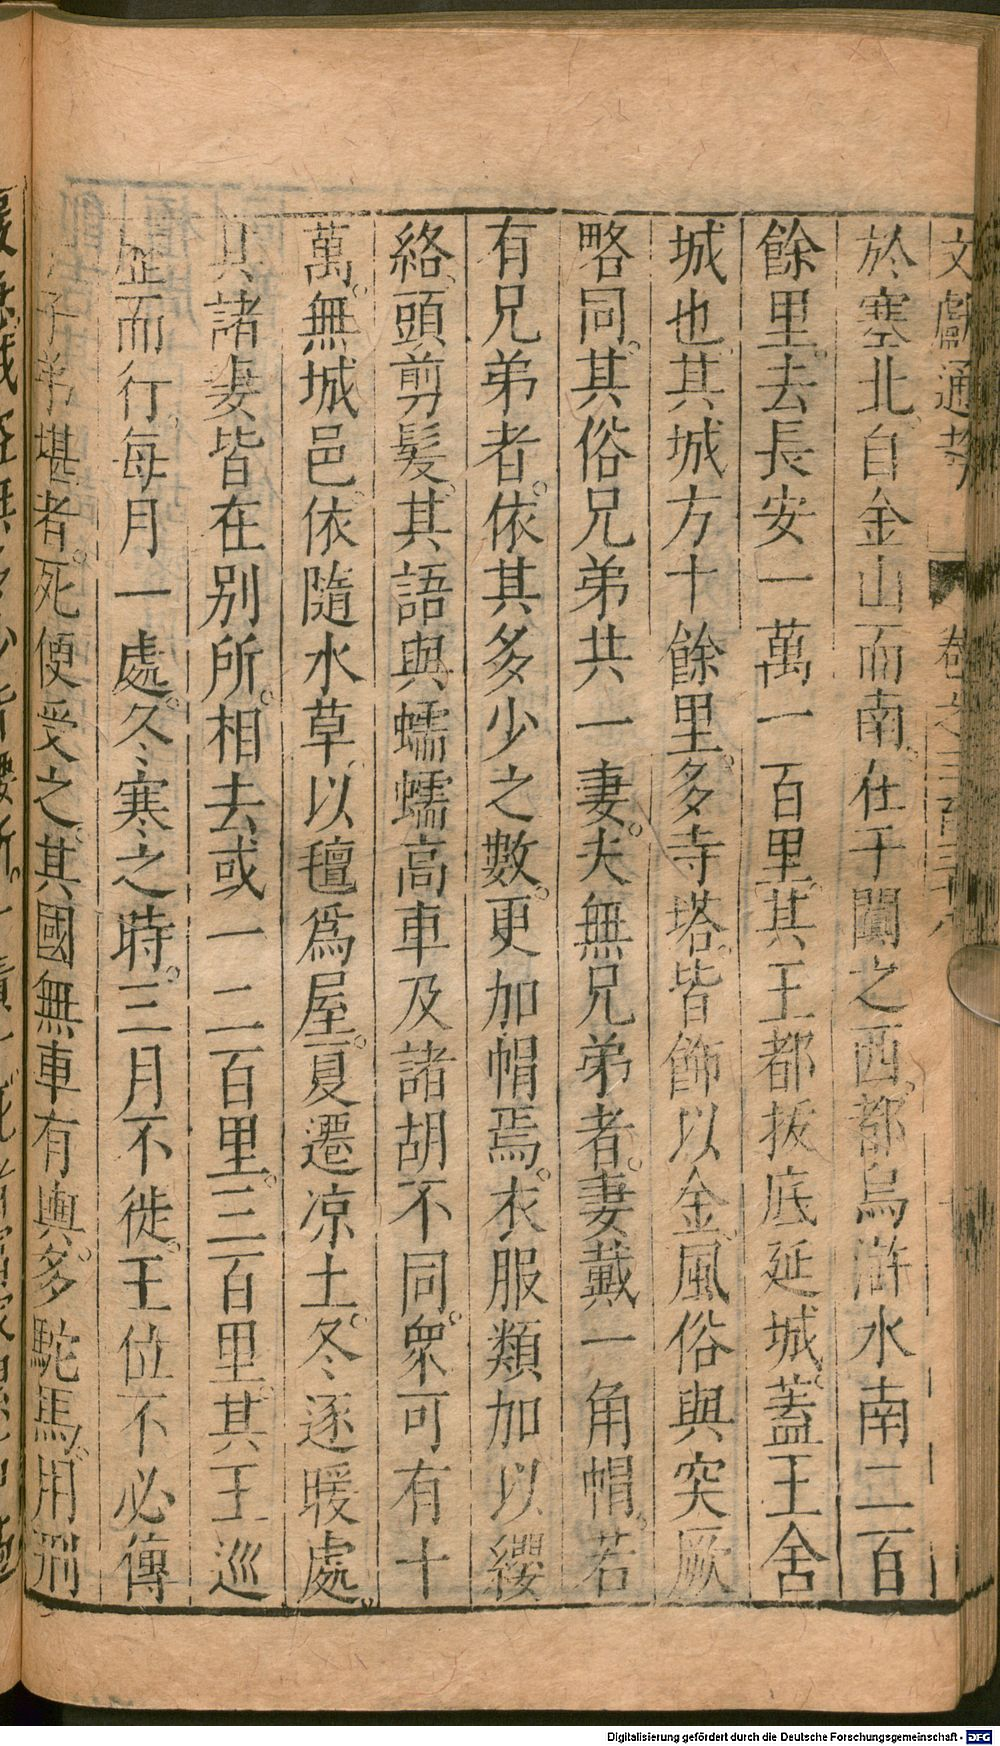 文獻通考 卷之三百三十八
於塞北。自金山而南。在于闐之西。都烏滸水南二百
餘里。去長安一萬一百里。其王都拔底延城。蓋王舍
城也。其城方十餘里。多寺塔。皆飾以金。風俗與突厥
略同。其俗兄弟共一妻。夫無兄弟者。妻戴一角帽。若
有兄弟者。依其多少之數。更加帽焉。衣服類加以纓
絡。頭剪髮。其語與蠕蠕高車及諸胡不同。衆可有十
萬。無城邑。依隨水草。以氊爲屋。夏遷凉土。冬逐暖處。
其諸妻皆在别所。相去或一二百里。三百里。其王巡
歷而行。每月一處。冬寒之時。三月不徙。王位不必傳
子弟堪者。死便受之。其國無車有輿。多駝馬。用刑
Digitalisierung gefördert durch die Deutsche Forschungsgemeinschaft - DFG